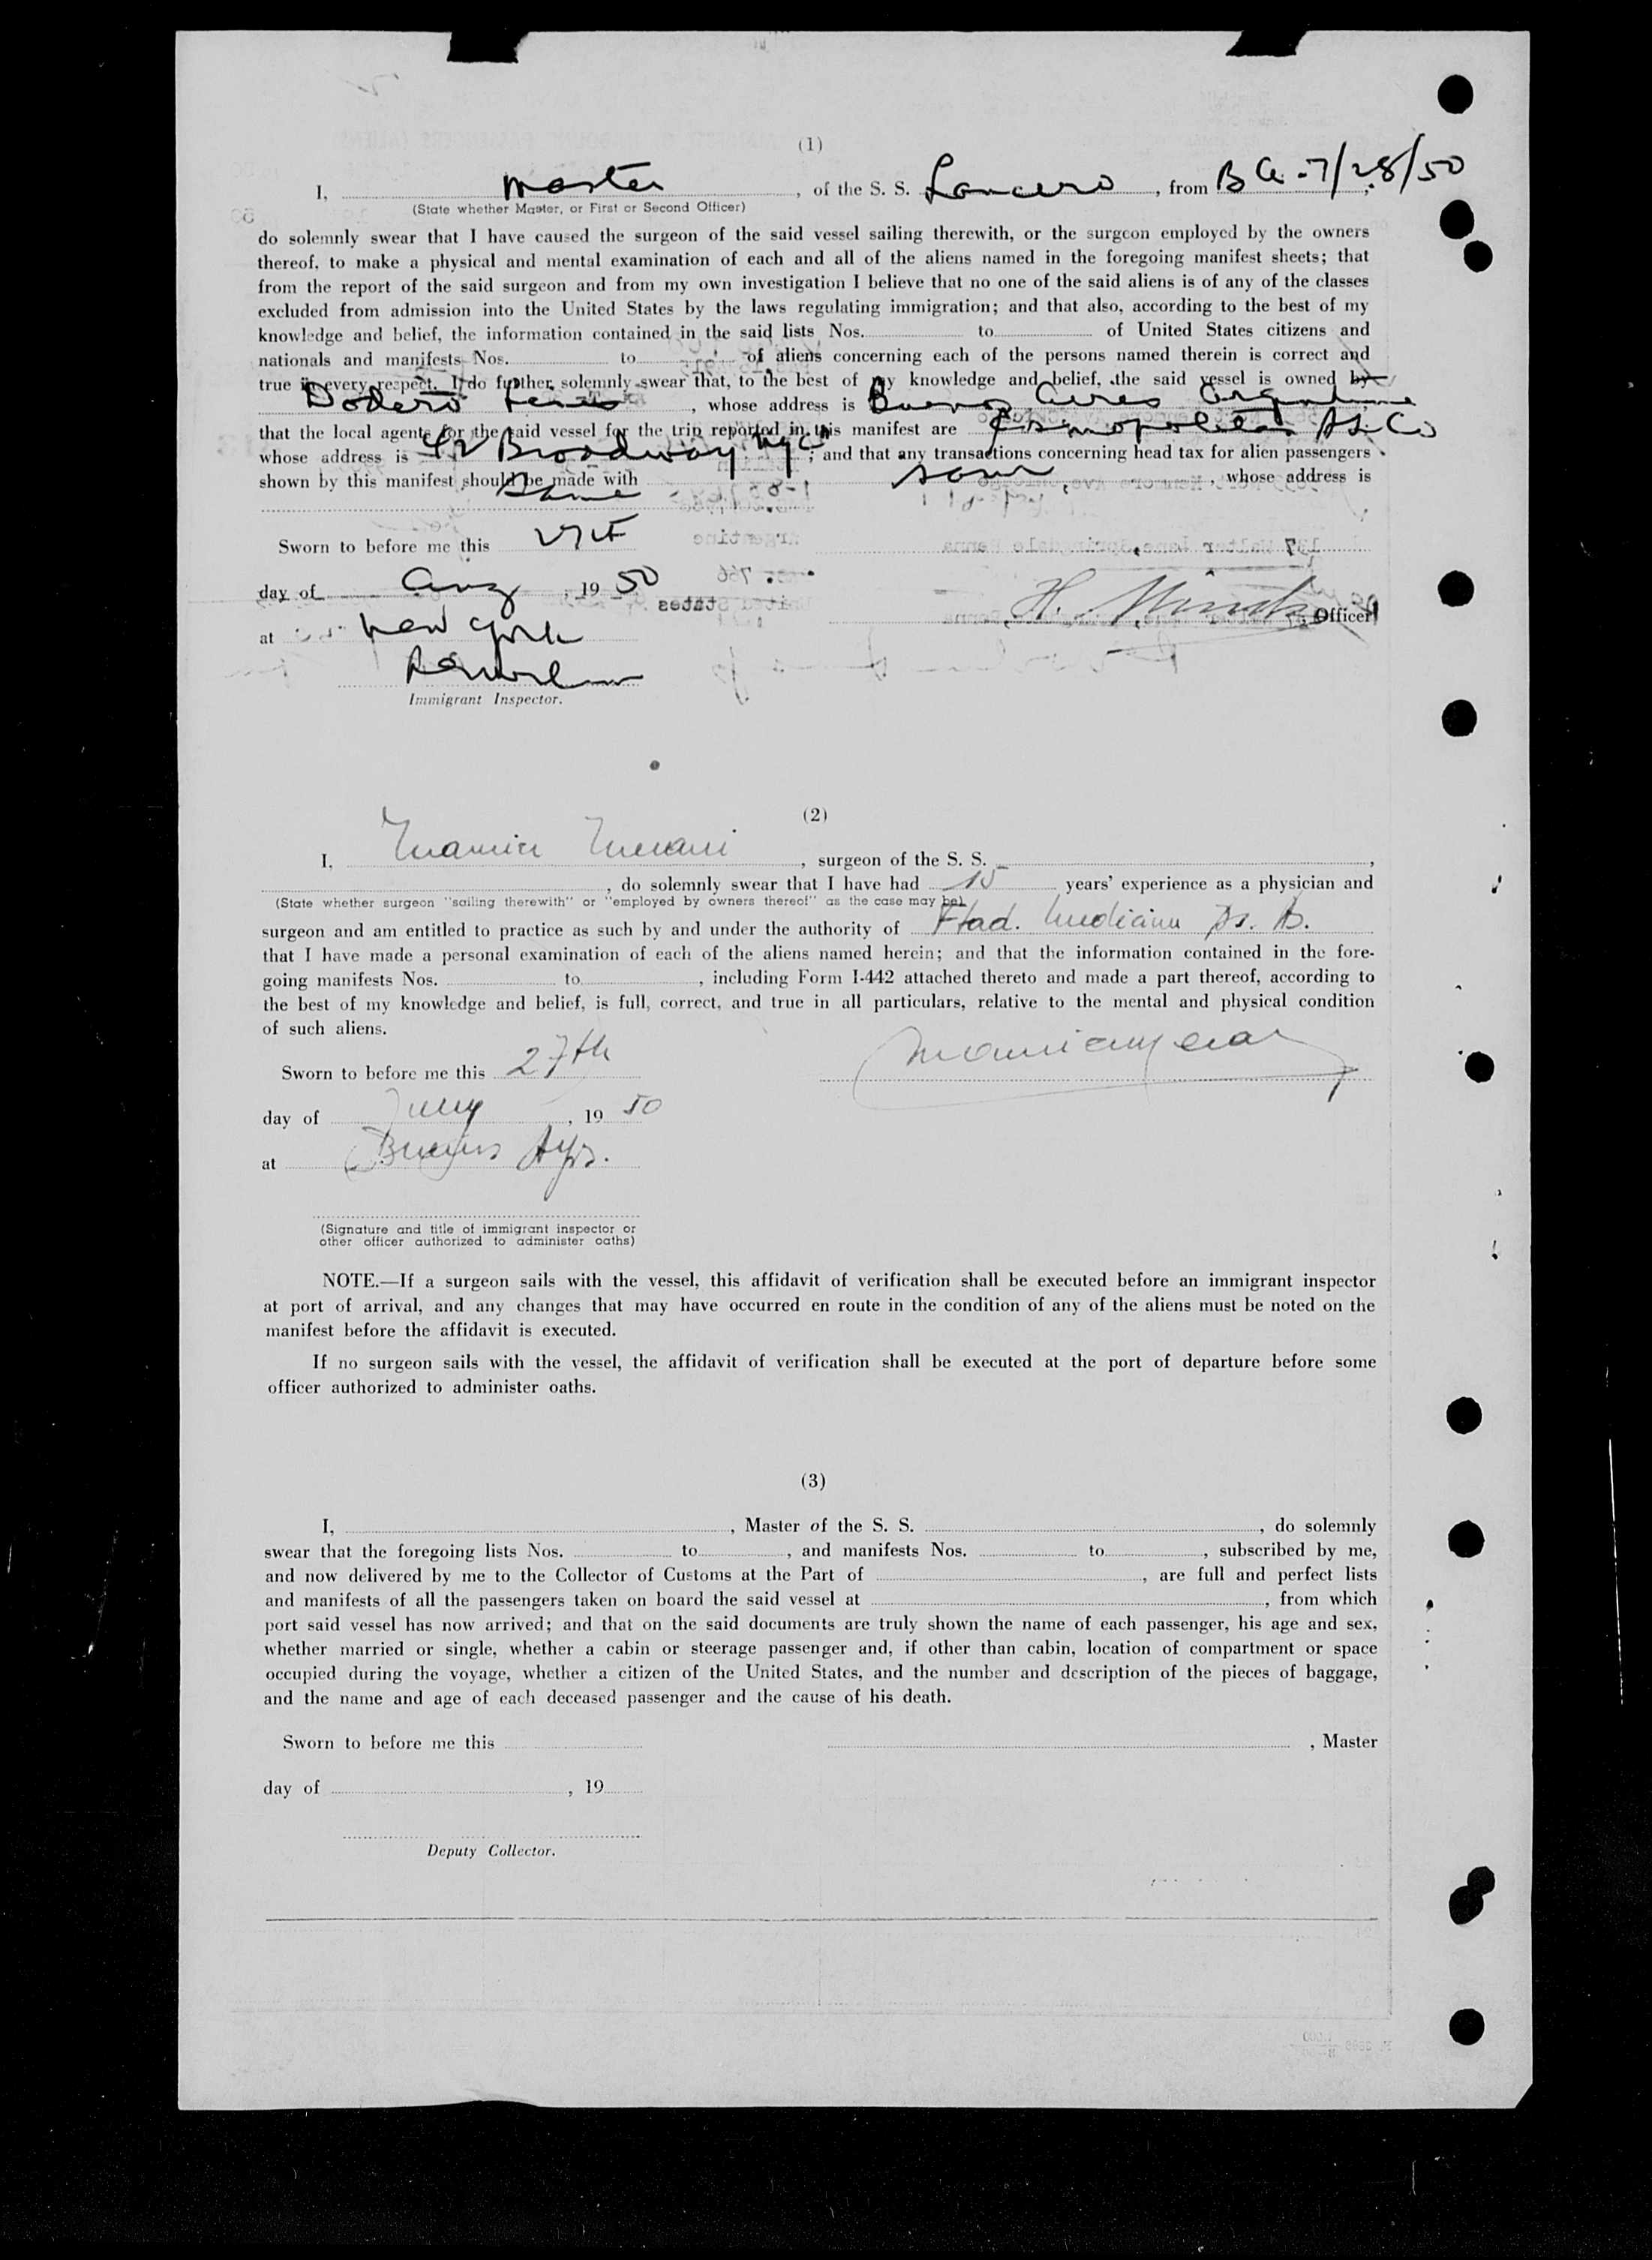 (1)
I, Master, of the S. S. Lancero, from B A - 7/28/50,
(State whether Master, or First or Second Officer)
do solemnly swear that I have caused the surgeon of the said vessel sailing therewith, or the surgeon employed by the owners
thereof, to make a physical and mental examination of each and all of the aliens named in the foregoing manifest sheets; that
from the report of the said surgeon and from my own investigation I believe that no one of the said aliens is of any of the classes
excluded from admission into the United States by the laws regulating immigration; and that also, according to the best of my
knowledge and belief, the information contained in the said lists Nos. to of United States citizens and
nationals and manifests Nos. to of aliens concerning each of the persons named therein is correct and
true in every respect. I do further solemnly swear that, to the best of my knowledge and belief, the said vessel is owned by
Dodero Lines, whose address is Buenos Aires Argentine
that the local agents for the said vessel for the trip reported in this manifest are Cosmopolitan SS Co
whose address is 42 Broadway NYC; and that any transactions concerning head tax for alien passengers
shown by this manifest should be made with same, whose address is
same
Sworn to before me this
day of Aug, 19 50
H. , Officer
at New York
Immigrant Inspector.
(2)
I, , surgeon of the S. S. ,
, do solemnly swear that I have had 15 years' experience as a physician and
(State whether surgeon "sailing therewith" or "employed by owners thereof" as the case may be)
surgeon and am entitled to practice as such by and under the authority of Bs. As.
that I have made a personal examination of each of the aliens named herein; and that the information contained in the fore-
going manifests Nos. to , including Form I-442 attached thereto and made a part thereof, according to
the best of my knowledge and belief, is full, correct, and true in all particulars, relative to the mental and physical condition
of such aliens.
Sworn to before me this 27th
day of July, 19 50
at Buenos Ayrs.
(Signature and title of immigrant inspector or
other officer authorized to administer oaths)
NOTE.—If a surgeon sails with the vessel, this affidavit of verification shall be executed before an immigrant inspector
at port of arrival, and any changes that may have occurred en route in the condition of any of the aliens must be noted on the
manifest before the affidavit is executed.
If no surgeon sails with the vessel, the affidavit of verification shall be executed at the port of departure before some
officer authorized to administer oaths.
(3)
I, , Master of the S. S. , do solemnly
swear that the foregoing lists Nos. to , and manifests Nos. to , subscribed by me,
and now delivered by me to the Collector of Customs at the Part of , are full and perfect lists
and manifests of all the passengers taken on board the said vessel at , from which
port said vessel has now arrived; and that on the said documents are truly shown the name of each passenger, his age and sex,
whether married or single, whether a cabin or steerage passenger and, if other than cabin, location of compartment or space
occupied during the voyage, whether a citizen of the United States, and the number and description of the pieces of baggage,
and the name and age of each deceased passenger and the cause of his death.
Sworn to before me this , Master
day of , 19
Deputy Collector.